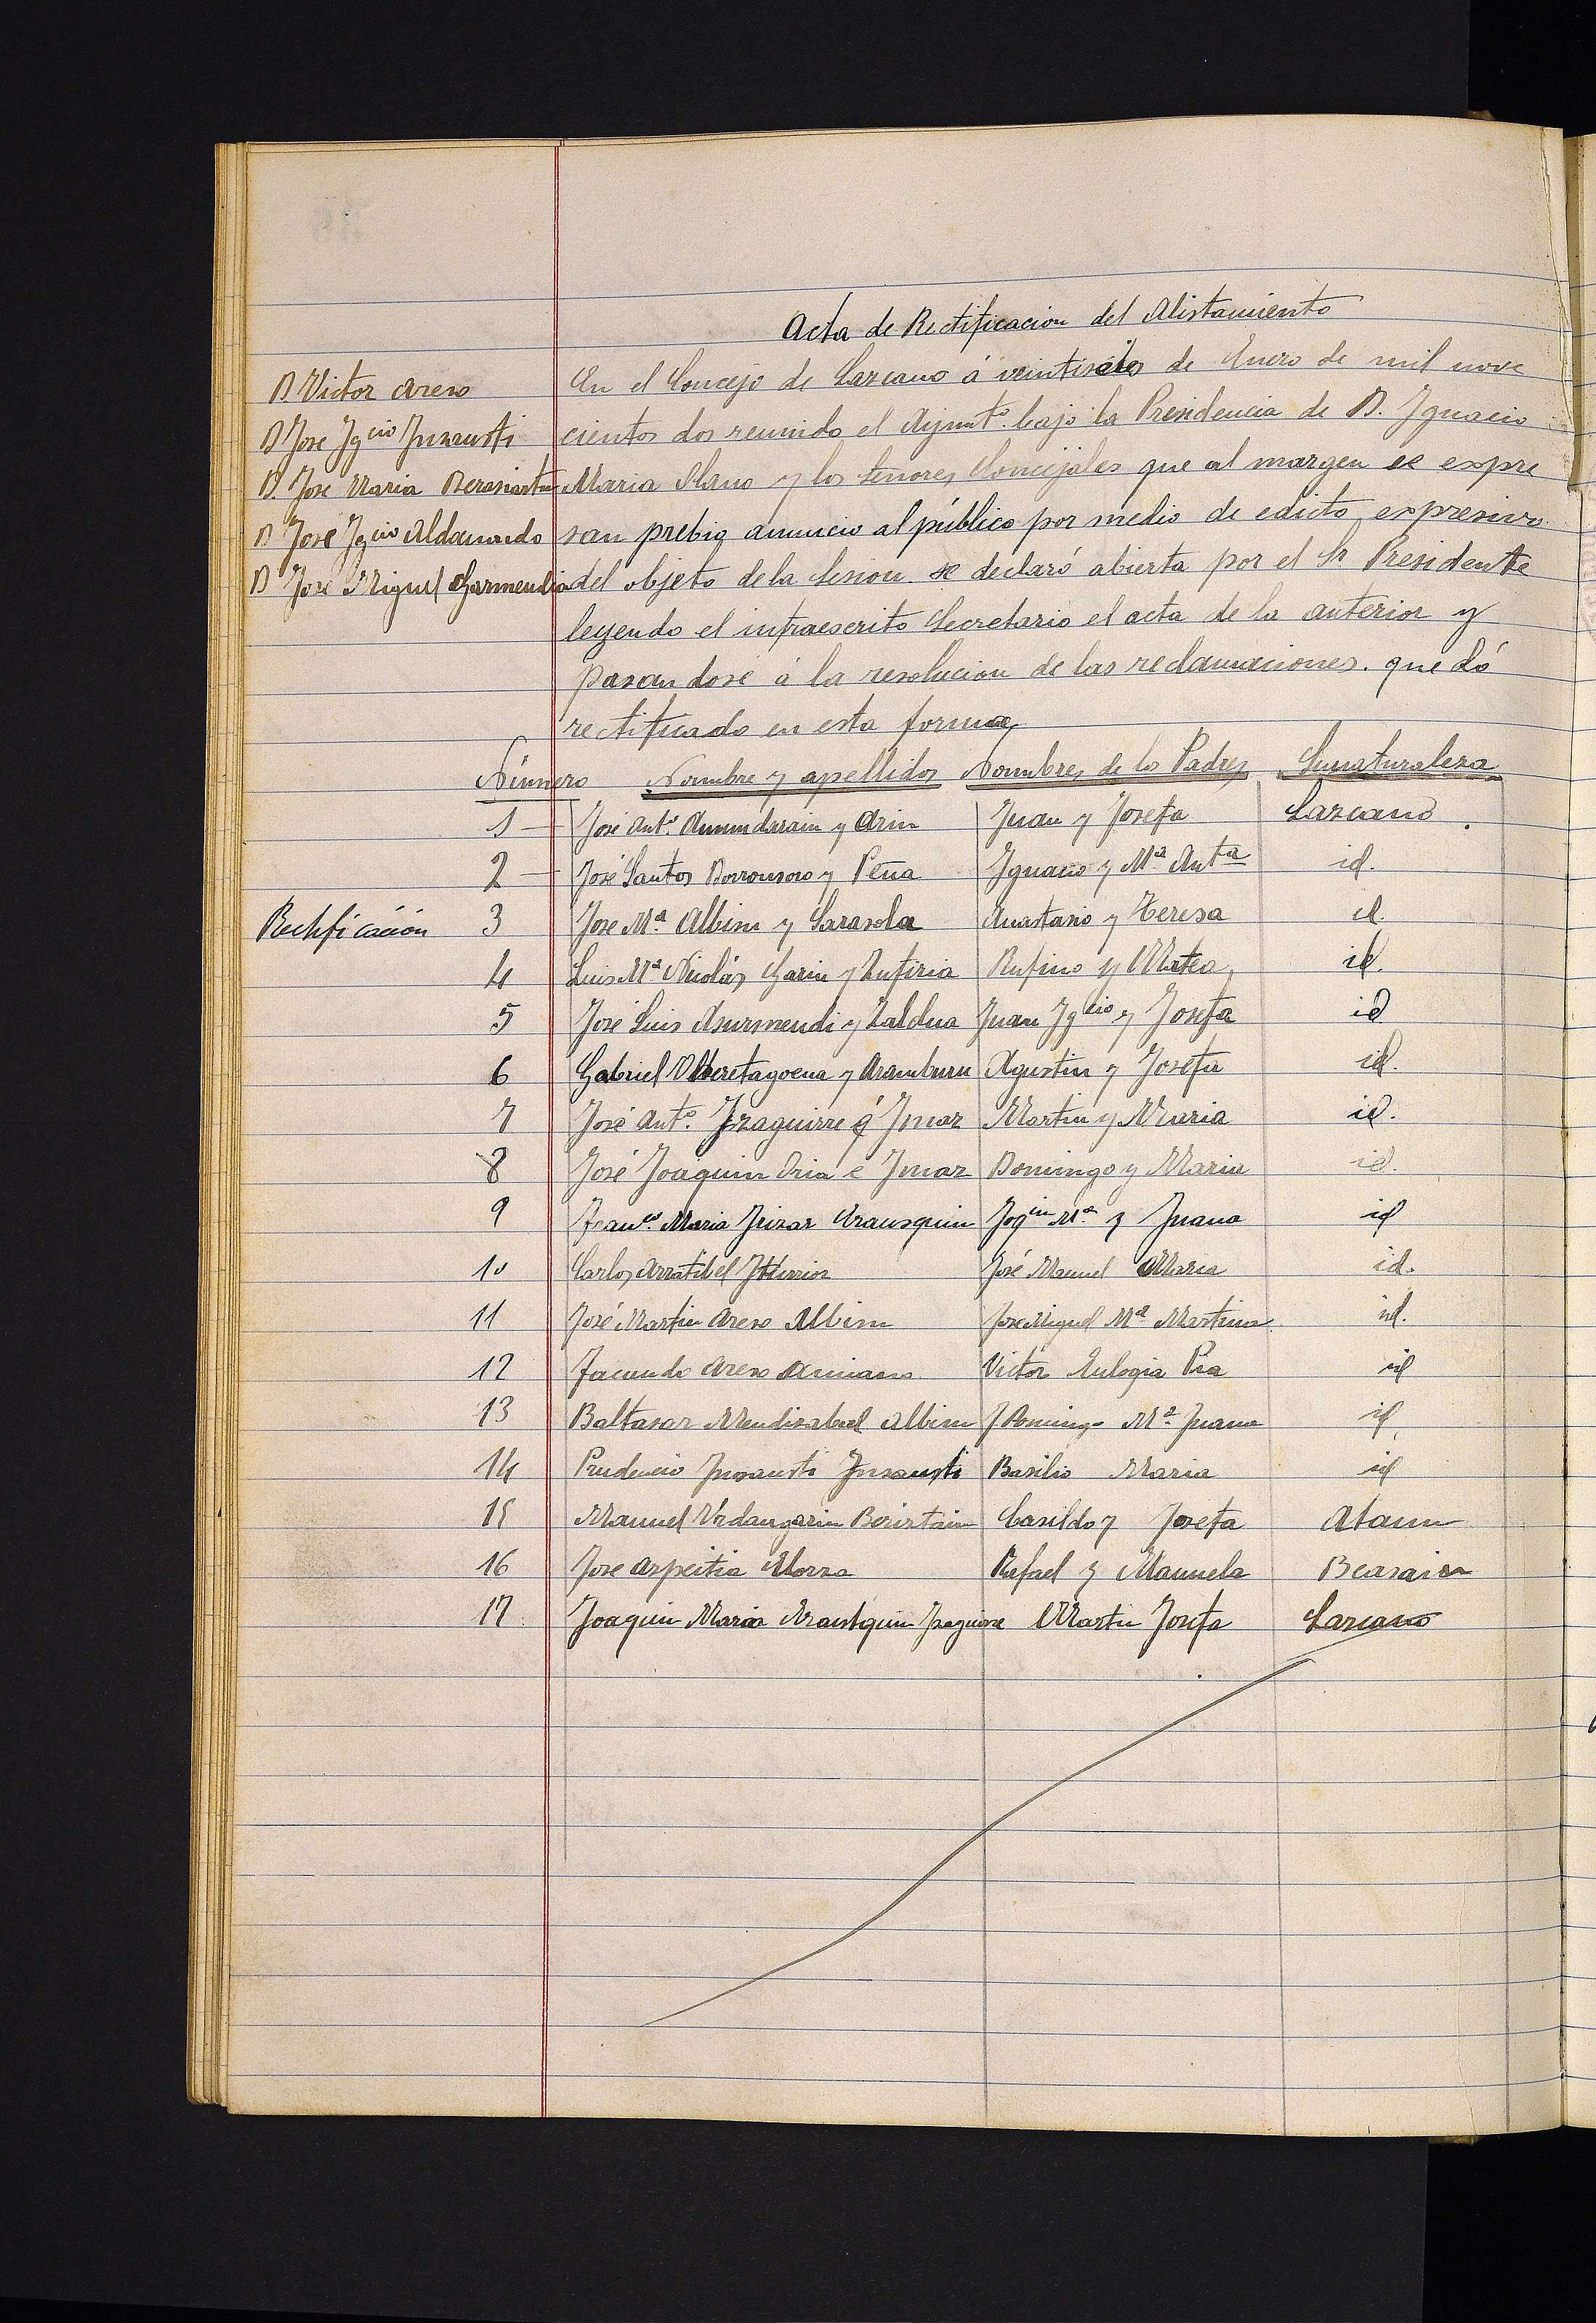 Acta de Rectificacion del Alistamiento
D Victor Areso
D Jose Ygcio Ynsausti
D. Jose Maria Berasiartu
D Jose Ygcio Aldanondo
D Jose Miguel Garmendia
En el Concejo de Lazcano á veintiseis de Enero de mil nove
cientos dos reunido el Ayunto. bajo la Presidencia de D. Ygnacio
Maria Olano y los señores Concejales que al margen se expre
san prebio anuncio al público por medio de edicto expresivo
del objeto de la Sesion. se declaró abierta por el Sr Presidente
leyendo el infraescrito Secretario el acta de la anterior y
pasandose á la resolucion de las reclamaciones. quedó
rectificado en esta forma,
Número Nombre y apellidos Nombres de los Padres Su naturaleza
1 José Anto. Amundarain y Arin Juan y Josefa Lazcano.
2 José Santos Borronsoro y Peña Ygnacio y Ma. Anta id.
Rectificación 3 Jose Ma. Albisu y Sarasola Anastasio y Teresa id.
4 Luis Ma Nicolás Garin y Zufiria Rufino y Matea, id.
5 José Luis Asurmendi y Zaldua Juan Ygcio y Josefa id
6 Gabriel Olaretagoena y Aramburu Agustin y Josefa id.
7 José Anto. Yzaguirre é Ymaz Martin y Maria id.
8 José Joaquin Oria é Ymaz Domingo y Maria id.
9 Franco. Maria Yrizar Arausquin Joqin Ma. y Juana id
10 Carlos Arratibel Yturrioz José Manuel Maria id.
11 José Martin Areso Albisu Jose Miguel Ma Martina. id.
12 Facundo Areso Amiano Victor Eulogia Pra id
13 Baltasar Mendizabal Albisu J Domingo Ma. Juana id,
14 Prudencio Ynsausti Ynsausti Basilio Maria id
15 Manuel Urdangarin Beristain Casildo y Josefa Ataun
16 Jose Azpeitia Elorza Rafael y Manuela Beasain
17. Joaquin Maria Arausquin Yzaguirre Martin Josefa Lazcano